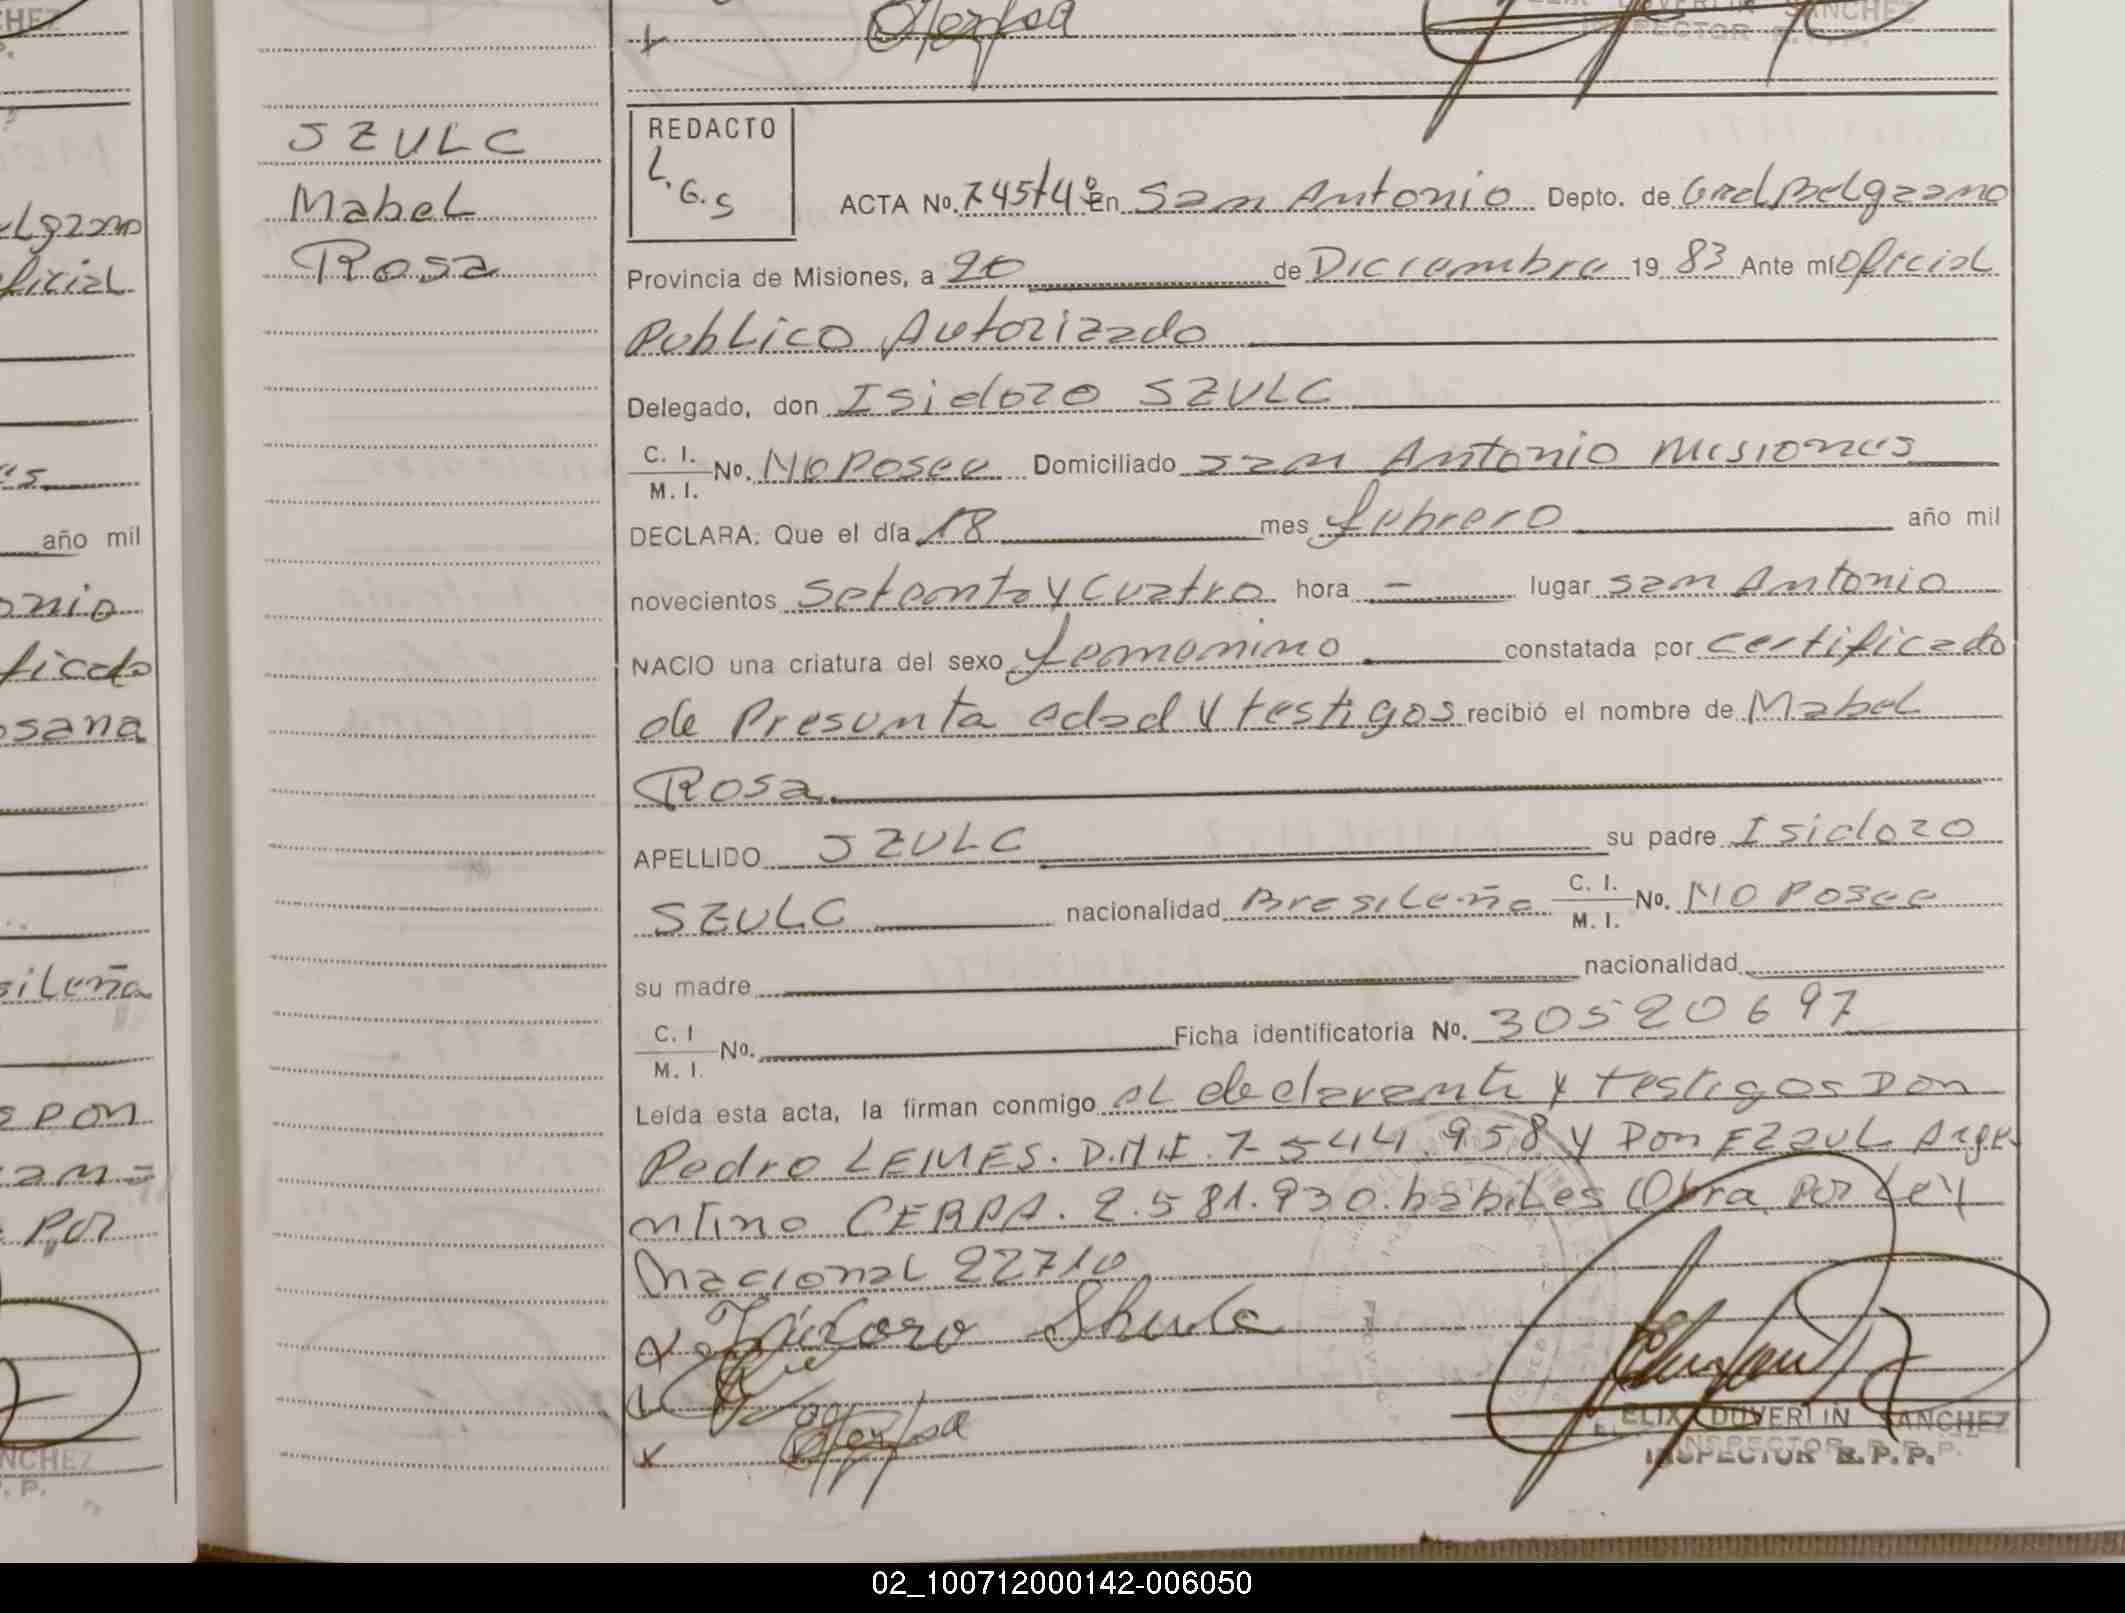 SZULC
Mabel
Rosa
REDACTO
L.G.S
ACTA No. 745T4º En San Antonio Depto. de Gral Belgrano
Provincia de Misiones, a 20 de Diciembre 19 83 Ante mí Oficial
Publico Autorizado
Delegado, don Isidoro SZULC
C. I.
M. I. No. No Posee Domiciliado San Antonio Misiones
DECLARA: Que el día 18 mes febrero año mil
novecientos Setenta y Cuatro hora - lugar San Antonio
NACIO una criatura del sexo femenino constatada por certificado
de Presunta edad y testigos recibió el nombre de Mabel
Rosa
APELLIDO SZULC su padre Isidoro
SZULC nacionalidad Brasileña C. I. M. I. No. No Posee
su madre nacionalidad
C. I M. I. No. Ficha identificatoria No. 30520697
Leída esta acta, la firman conmigo el declarante y testigos Don
Pedro LEMES. D.N.I. 7544.958 y Don Eraul Arge
ntino CERPA. 2.581.930. habiles Obra Por Ley
Nacional 22710
Isidoro Shulc
ELIX DUVERLIN SANCHEZ
INSPECTOR R.P.P.
elgrano
oficial
año mil
onio
ficado
osana
sileña
Don
Por
NCHEZ
. P.
02_100712000142-006050